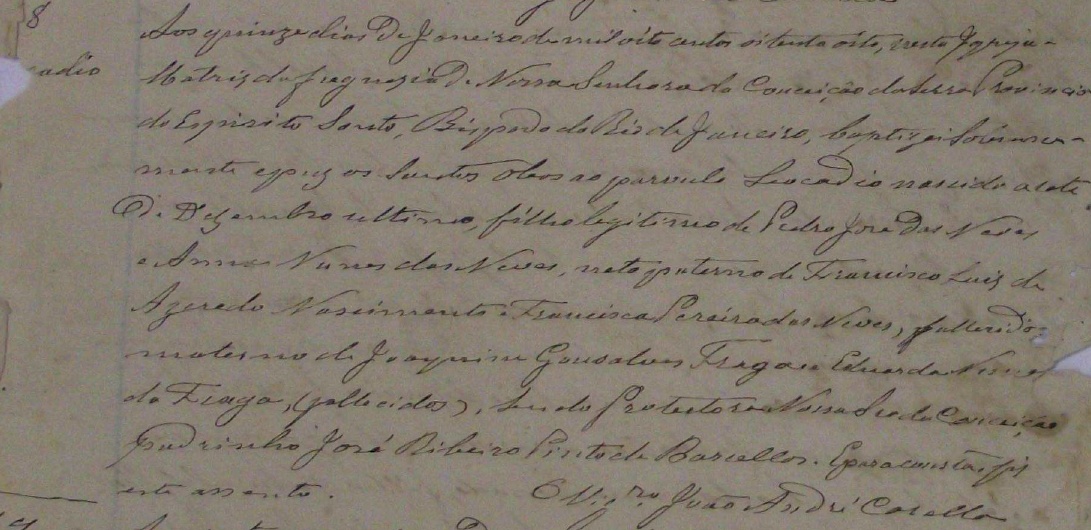 8
cadio
Aos quinze dias de Janeiro de mil oito centos oitenta oito, nesta Igreja-
Matriz da freguezia de Nossa Senhora da Conceição da Serra Provincia
do Espirito Santo, Bispado do Rio de Janeiro, baptizei solemne-
mente e puz os Santos Oleos ao parvulo Leocadio nascido a sete
de Dezembro ultimo, filho legitimo de Pedro José das Neves
e Anna Nunes das Neves, neto paterno de Francisco Luiz de
Azeredo Nascimento e Francisca Pereira das Neves, fallecidos
materno de Joaquim Gonsalves Fraga e Eduarda Nunes
da Fraga, (fallecidos), sendo Protectora Nossa Sra da Conceição
padrinho José Ribeiro Pinto de Barcellos. E para constar, fiz
este assento.
O Vigro João André Casella